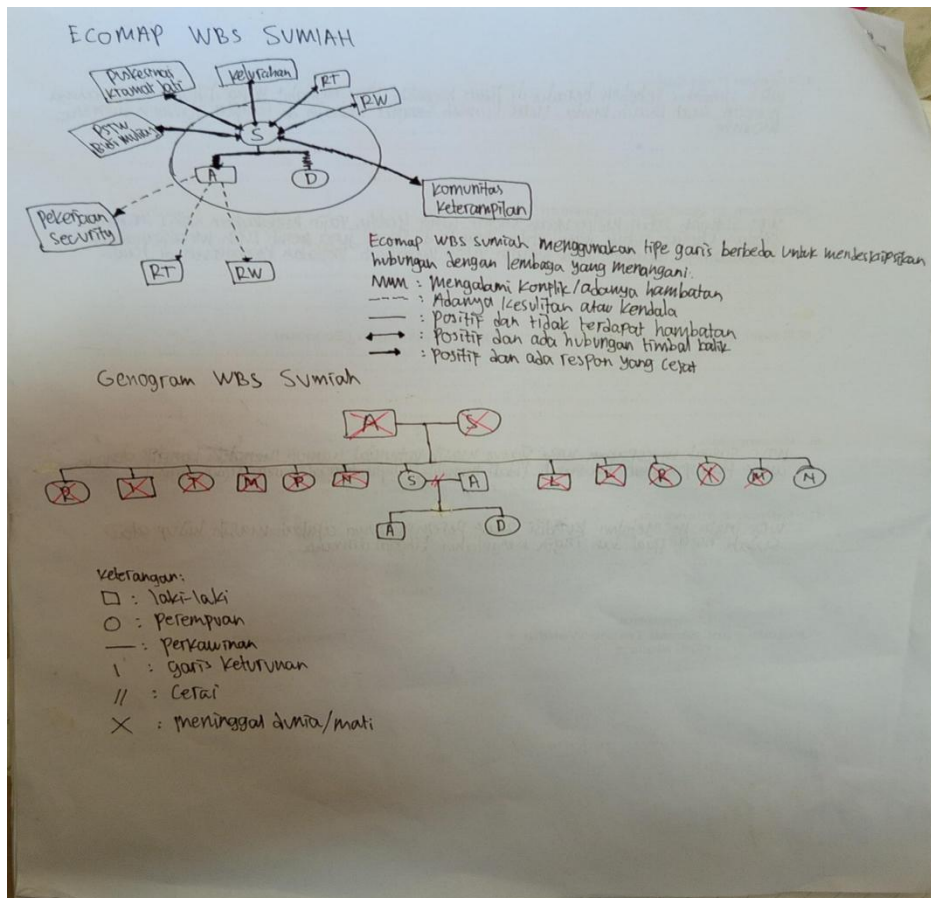 ECOMAP WBS SUMIAH
Puskesmas
Kramat Jati
Kelurahan
RT
RW
PSTW
Budi Mulia
S
A
D
Komunitas
Keterampilan
Pekerjaan
Security
RT
RW
Ecomap WBS Sumiah menggunakan tipe garis berbeda untuk mendeskripsikan
hubungan dengan lembaga yang menangani.
: Mengalami Konplik/adanya hambatan
: Adanya Kesulitan atau kendala
: Positif dan tidak terdapat hambatan
: Positif dan ada hubungan timbal balik
: Positif dan ada respon yang cepat
Genogram WBS Sumiah
A S
R T M R N S A L L R Y M N
A D
Keterangan:
: laki-laki
: perempuan
: perkawinan
: garis keturunan
// : Cerai
X : meninggal dunia/mati